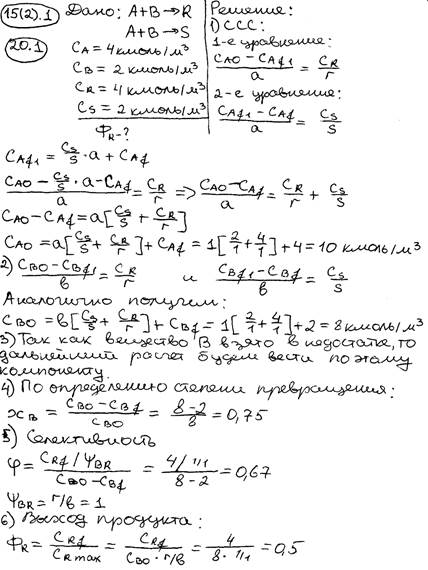 15(2).1 Дано: A+B→R Решение:
A+B→S 1) ССС:
20.1 CA = 4 кмоль/м³ 1-е уравнение:
CB = 2 кмоль/м³ (CAO − CAf1)/a = CR/r
CR = 4 кмоль/м³ 2-е уравнение:
CS = 2 кмоль/м³ (CAf1 − CAf)/a = CS/S
ΦR-?
CAf1 = CS/S · a + CAf
(CAO − CS/S · a − CAf)/a = CR/r => (CAO − CAf)/a = CR/r + CS/S
CAO − CAf = a[CS/S + CR/r]
CAO = a[CS/S + CR/r] + CAf = 1[2/1 + 4/1] + 4 = 10 кмоль/м³
2) (CBO − CBf1)/в = CR/r и (CBf1 − CBf)/в = CS/S
Аналогично получим:
CBO = в[CS/S + CR/r] + CBf = 1[2/1 + 4/1] + 2 = 8 кмоль/м³
3) Так как вещество В взято в недостатке, то
дальнейший расчет будем вести по этому
компоненту.
4) По определению степени превращения:
xB = (CBO − CBf)/CBO = (8 − 2)/8 = 0,75
5) Селективность
φ = (CRf / ΨBR)/(CBO − CBf) = (4/ 1/1)/(8 − 2) = 0,67
ΨBR = r/в = 1
6) Выход продукта:
ΦR = CRf/CR max = CRf/(CBO · r/в) = 4/(8 · 1/1) = 0,5